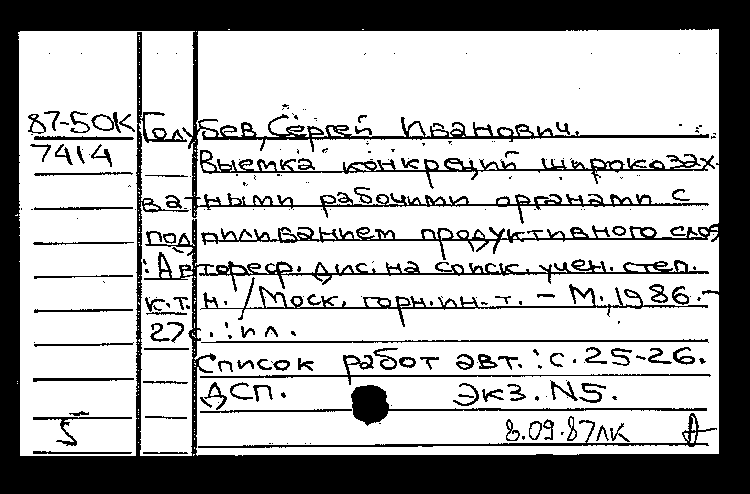 87-50К Голубев, Сергей Иванович.
7414 Выемка конкреций широкозах-
ватными рабочими органами с
подпиливанием продуктивного слоя
: Автореф. дис. на соиск. учен. степ.
к.т.н. / Моск. горн. ин-т. - М., 1986. -
27с. : ил.
Список работ авт. : с. 25-26.
ДСП. Экз. N5.
5 8.09.87 лк